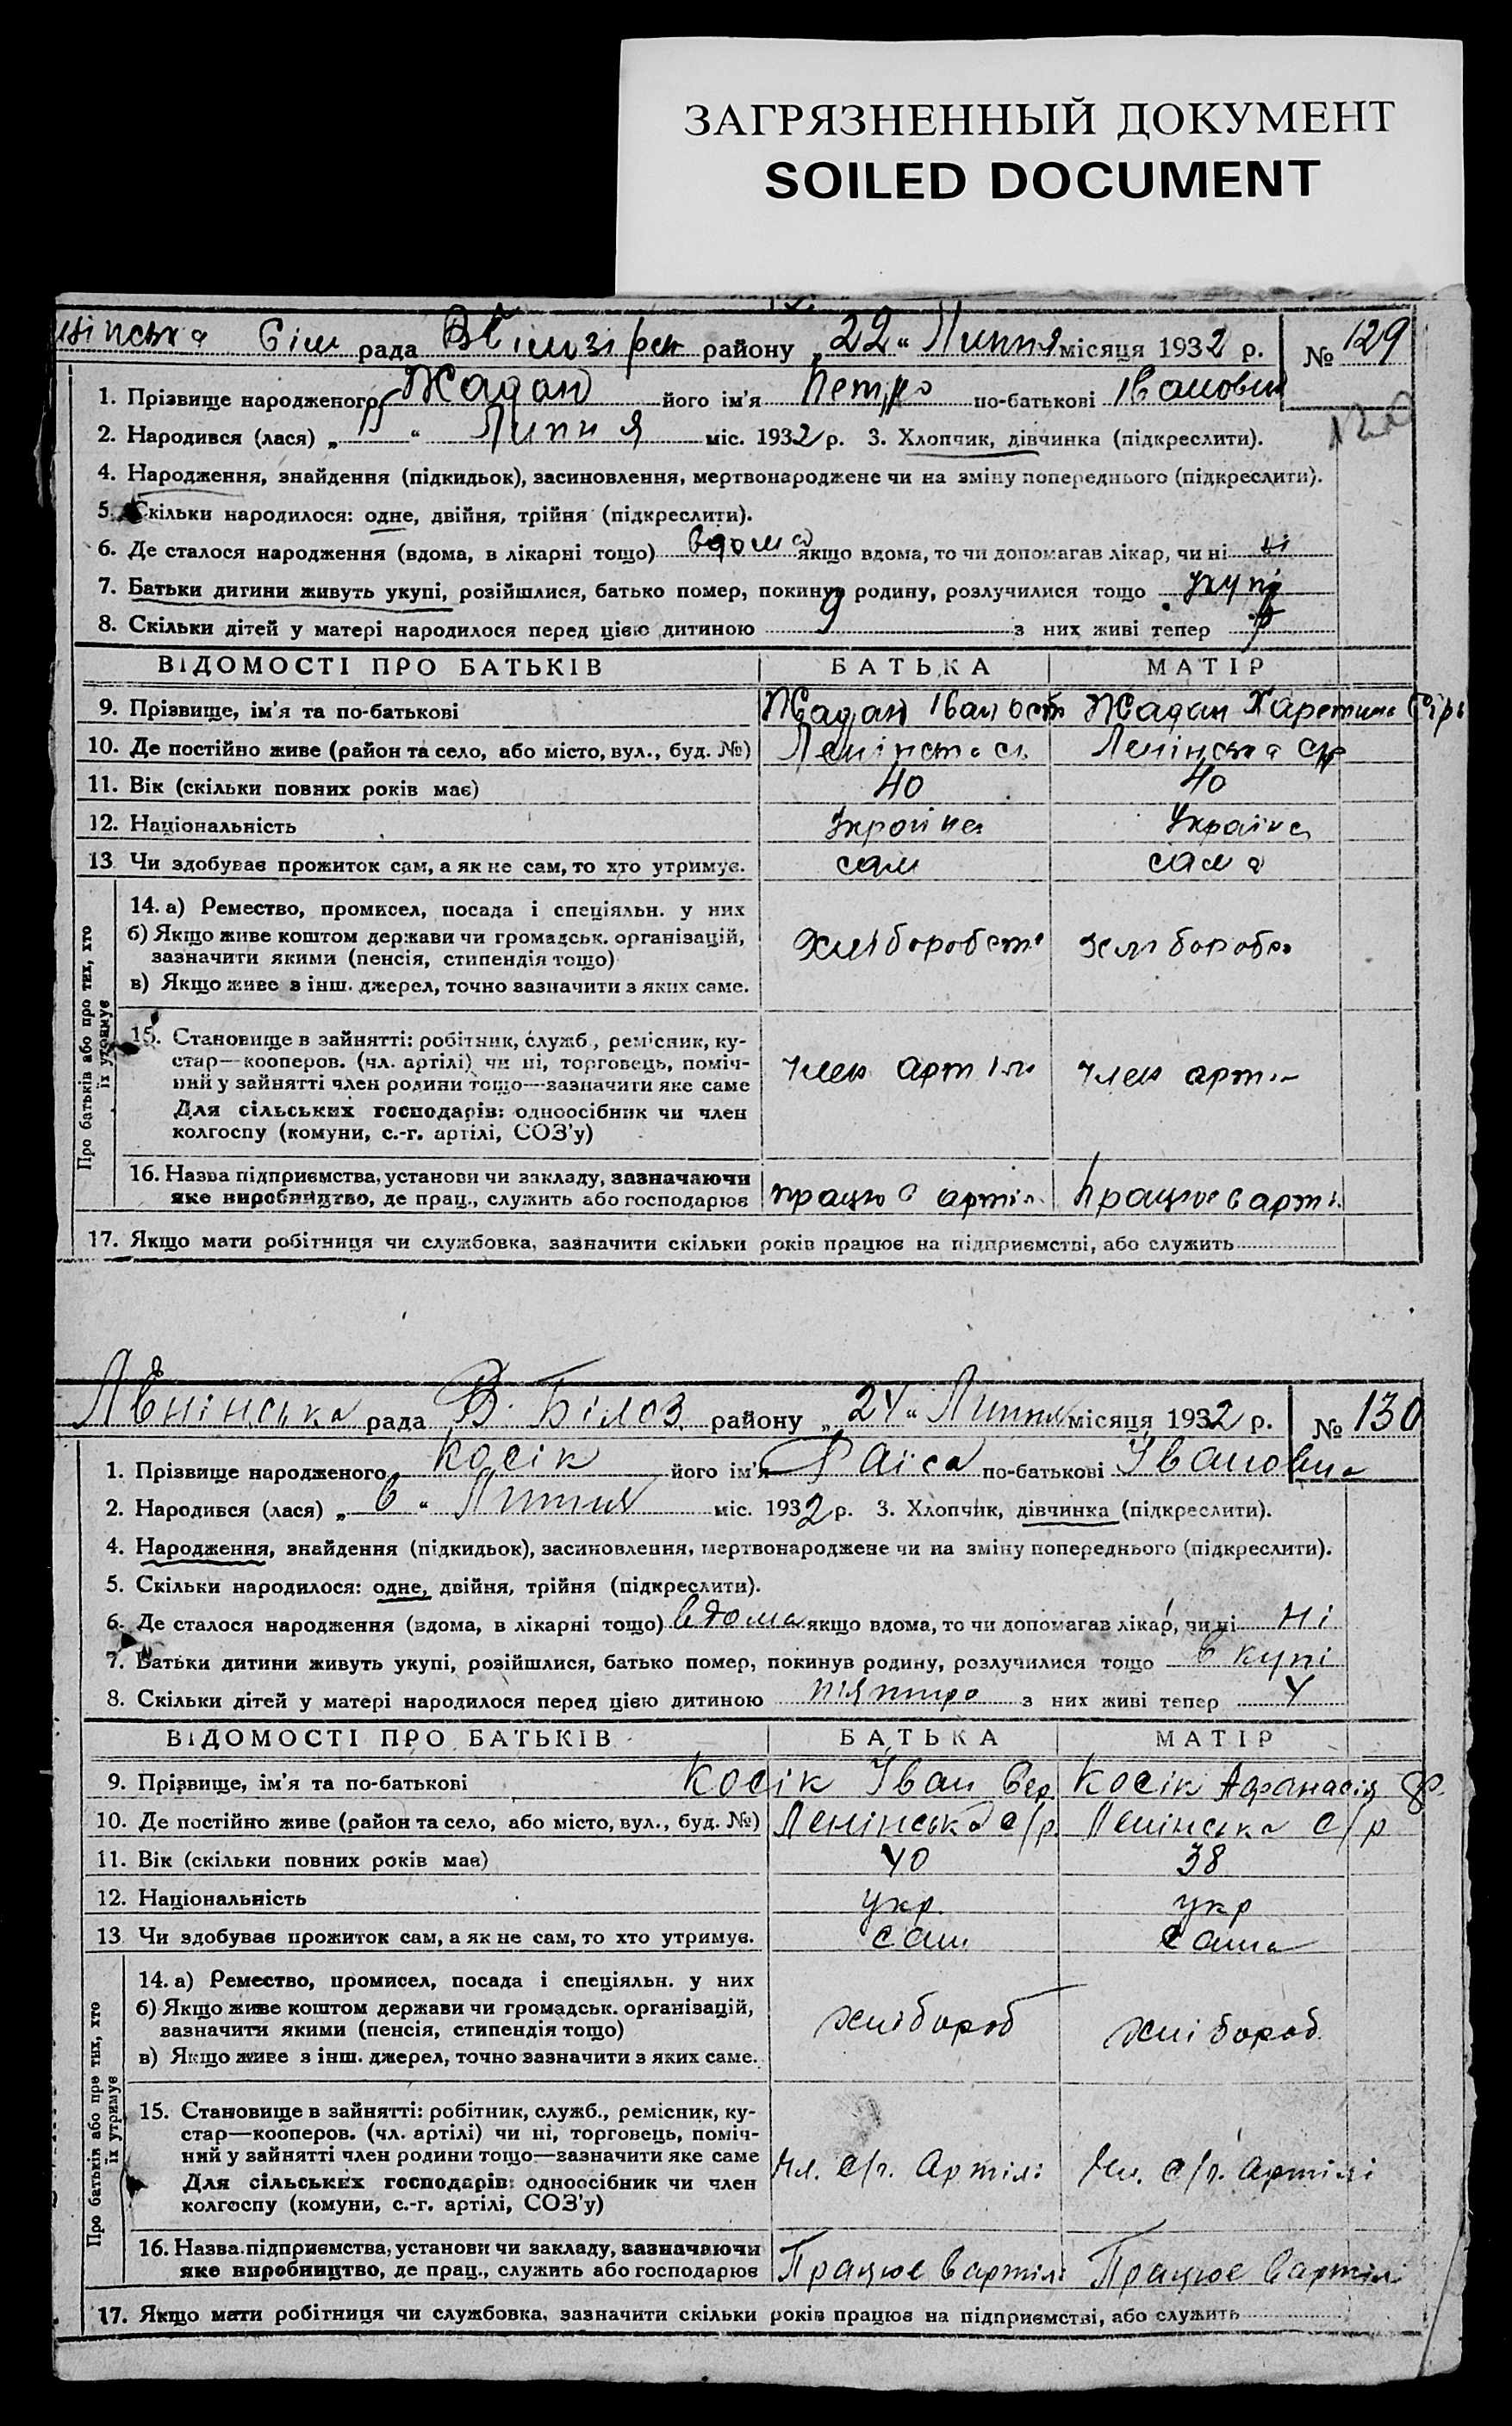 ЗАГРЯЗНЕННЫЙ ДОКУМЕНТ
SOILED DOCUMENT
Сіл рада району „22“ Липня місяця 1932 р. № 129
1. Прізвище народженого Жадан його ім'я Петро по-батькові Івanович
2. Народився (лася) „ “ Липня міс. 1932 р. 3. Хлопчик, дівчинка (підкреслити).
4. Народження, знайдення (підкидьок), засиновлення, мертвонароджене чи на зміну попереднього (підкреслити).
5. Скільки народилося: одне, двійня, трійня (підкреслити).
6. Де сталося народження (вдома, в лікарні тощо) вдома якщо вдома, то чи допомагав лікар, чи ні ні
7. Батьки дитини живуть укупі, розійшлися, батько помер, покинув родину, розлучилися тощо укупі
8. Скільки дітей у матері народилося перед цією дитиною 9 з них живі тепер
ВІДОМОСТІ ПРО БАТЬКІВ БАТЬКА МАТІР
9. Прізвище, ім'я та по-батькові Жадан Іван Ост Жадан Харетина
10. Де постійно живе (район та село, або місто, вул., буд. №) Ленінська Ленінська с/р
11. Вік (скільки повних років має) 40 40
12. Національність Україна Україна
13 Чи здобуває прожиток сам, а як не сам, то хто утримує. сам сама
Про батьків або про тих, хто їх утримує
14. а) Ремество, промисел, посада і спеціяльн. у них
б) Якщо живе коштом держави чи громадськ. організацій,
зазначити якими (пенсія, стипендія тощо)
в) Якщо живе з інш. джерел, точно зазначити з яких саме.
15. Становище в зайнятті: робітник, служб., ремісник, ку-
стар—кооперов. (чл. артілі) чи ні, торговець, поміч-
ний у зайнятті член родини тощо—зазначити яке саме
член артіли член арт
Для сільських господарів: одноосібник чи член
колгоспу (комуни, с.-г. артілі, СОЗ'у)
16. Назва підприємства, установи чи закладу, зазначаючи
яке виробництво, де прац., служить або господарює працює в артіл Працює в арті
17. Якщо мати робітниця чи службовка, зазначити скільки років працює на підприємстві, або служить
Лєнінська рада В. Білоз району „24“ Липня місяця 1932 р. № 130
1. Прізвище народженого Косік його ім'я Раїса по-батькові Івановна
2. Народився (лася) „6“ Липня міс. 1932 р. 3. Хлопчик, дівчинка (підкреслити).
4. Народження, знайдення (підкидьок), засиновлення, мертвонароджене чи на зміну попереднього (підкреслити).
5. Скільки народилося: одне, двійня, трійня (підкреслити).
6. Де сталося народження (вдома, в лікарні тощо) вдома якщо вдома, то чи допомагав лікар, чи ні ні
7. Батьки дитини живуть укупі, розійшлися, батько помер, покинув родину, розлучилися тощо в купі
8. Скільки дітей у матері народилося перед цією дитиною пiятиро з них живі тепер 4
ВІДОМОСТІ ПРО БАТЬКІВ БАТЬКА МАТІР
9. Прізвище, ім'я та по-батькові Косік Іван Косік Афанасія
10. Де постійно живе (район та село, або місто, вул., буд. №) Ленінська с/р Ленінська с/р
11. Вік (скільки повних років має) 40 38
12. Національність укр. укр
13 Чи здобуває прожиток сам, а як не сам, то хто утримує. сам сама
Про батьків або про тих, хто їх утримує
14. а) Ремество, промисел, посада і спеціяльн. у них
б) Якщо живе коштом держави чи громадськ. організацій,
зазначити якими (пенсія, стипендія тощо) хлібороб хлібороб
в) Якщо живе з інш. джерел, точно зазначити з яких саме.
15. Становище в зайнятті: робітник, служб., ремісник, ку-
стар—кооперов. (чл. артілі) чи ні, торговець, поміч-
ний у зайнятті член родини тощо—зазначити яке саме
Чл. с/г. Артілі Чл. с/г. артілі
Для сільських господарів: одноосібник чи член
колгоспу (комуни, с.-г. артілі, СОЗ'у)
16. Назва підприємства, установи чи закладу, зазначаючи
яке виробництво, де прац., служить або господарює Працює в артілі Працює в артілі
17. Якщо мати робітниця чи службовка, зазначити скільки років працює на підприємстві, або служить